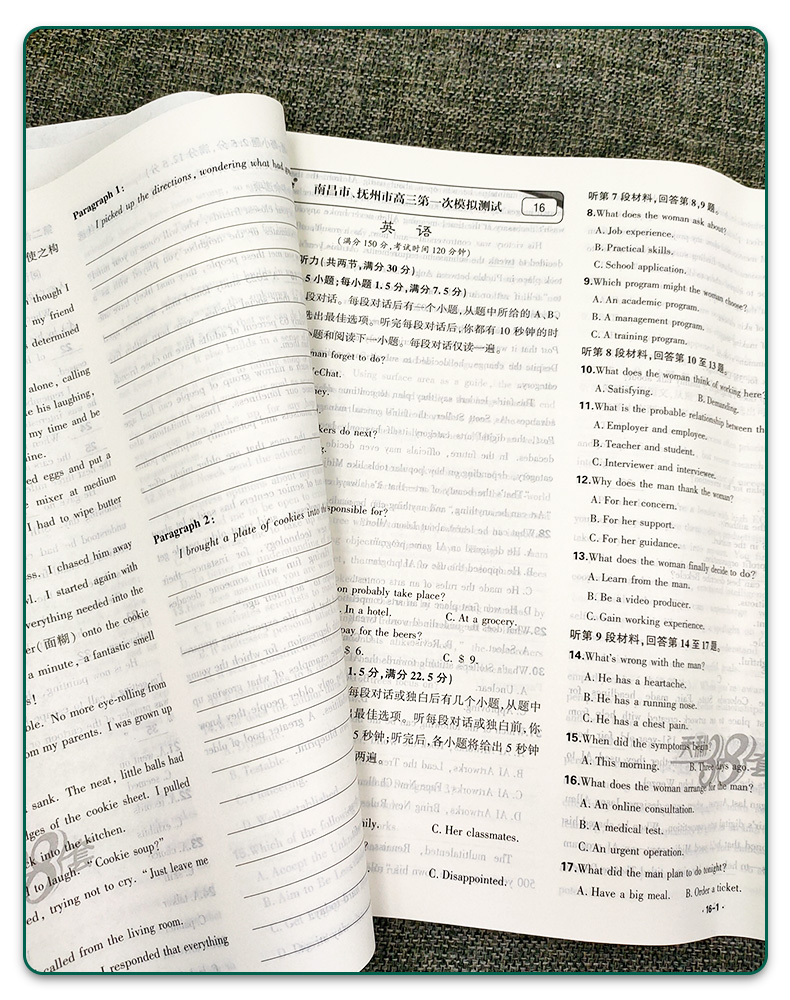 二阶
使之构
n though I
my friend
determined
alone, calling
e his laughing,
my time and be
ine.
ed eggs and put a
mixer at medium
I had to wipe butter
ass. I chased him away
wl. I started again with
verything needed into the
er(面糊) onto the cookie
a minute, a fantastic smell
s!
ole. No more eye-rolling from
om my parents. I was grown up
sank. The neat, little balls had
dges of the cookie sheet. I pulled
ck into the kitchen.
d to laugh. "Cookie soup?"
ed, trying not to cry. "Just leave me
called from the living room.
I responded that everything
Paragraph 1:
I picked up the directions, wondering what had
Paragraph 2:
I brought a plate of cookies into
南昌市、抚州市高三第一次模拟测试
16
英 语
(满分 150 分,考试时间 120 分钟)
听力(共两节,满分 30 分)
5 小题;每小题 1.5 分,满分 7.5 分)
段对话。每段对话后有一个小题,从题中所给的 A、B、
选出最佳选项。听完每段对话后,你都有 10 秒钟的时
小题和阅读下一小题。每段对话仅读一遍。
man forget to do?
eChat.
ney.
kers do next?
g.
responsible for?
on probably take place?
In a hotel.
C. At a grocery.
pay for the beers?
$ 6.
C. $ 9.
1.5 分,满分 22.5 分)
每段对话或独白后有几个小题,从题中
出最佳选项。听每段对话或独白前,你
5 秒钟;听完后,各小题将给出 5 秒钟
两遍。
mily.
C. Her classmates.
?
C. Disappointed.
听第 7 段材料,回答第 8、9 题。
8.What does the woman ask about?
A. Job experience.
B. Practical skills.
C. School application.
9.Which program might the woman choose?
A. An academic program.
B. A management program.
C. A training program.
听第 8 段材料,回答第 10 至 13 题。
10.What does the woman think of working here?
A. Satisfying.
B. Demanding.
11.What is the probable relationship between th
A. Employer and employee.
B. Teacher and student.
C. Interviewer and interviewee.
12.Why does the man thank the woman?
A. For her concern.
B. For her support.
C. For her guidance.
13.What does the woman finally decide to do?
A. Learn from the man.
B. Be a video producer.
C. Gain working experience.
听第 9 段材料,回答第 14 至 17 题。
14.What's wrong with the man?
A. He has a heartache.
B. He has a running nose.
C. He has a chest pain.
15.When did the symptoms begin?
A. This morning.
B. Three days ago.
16.What does the woman arrange for the man?
A. An online consultation.
B. A medical test.
C. An urgent operation.
17.What did the man plan to do tonight?
A. Have a big meal.
B. Order a ticket.
·16-1·